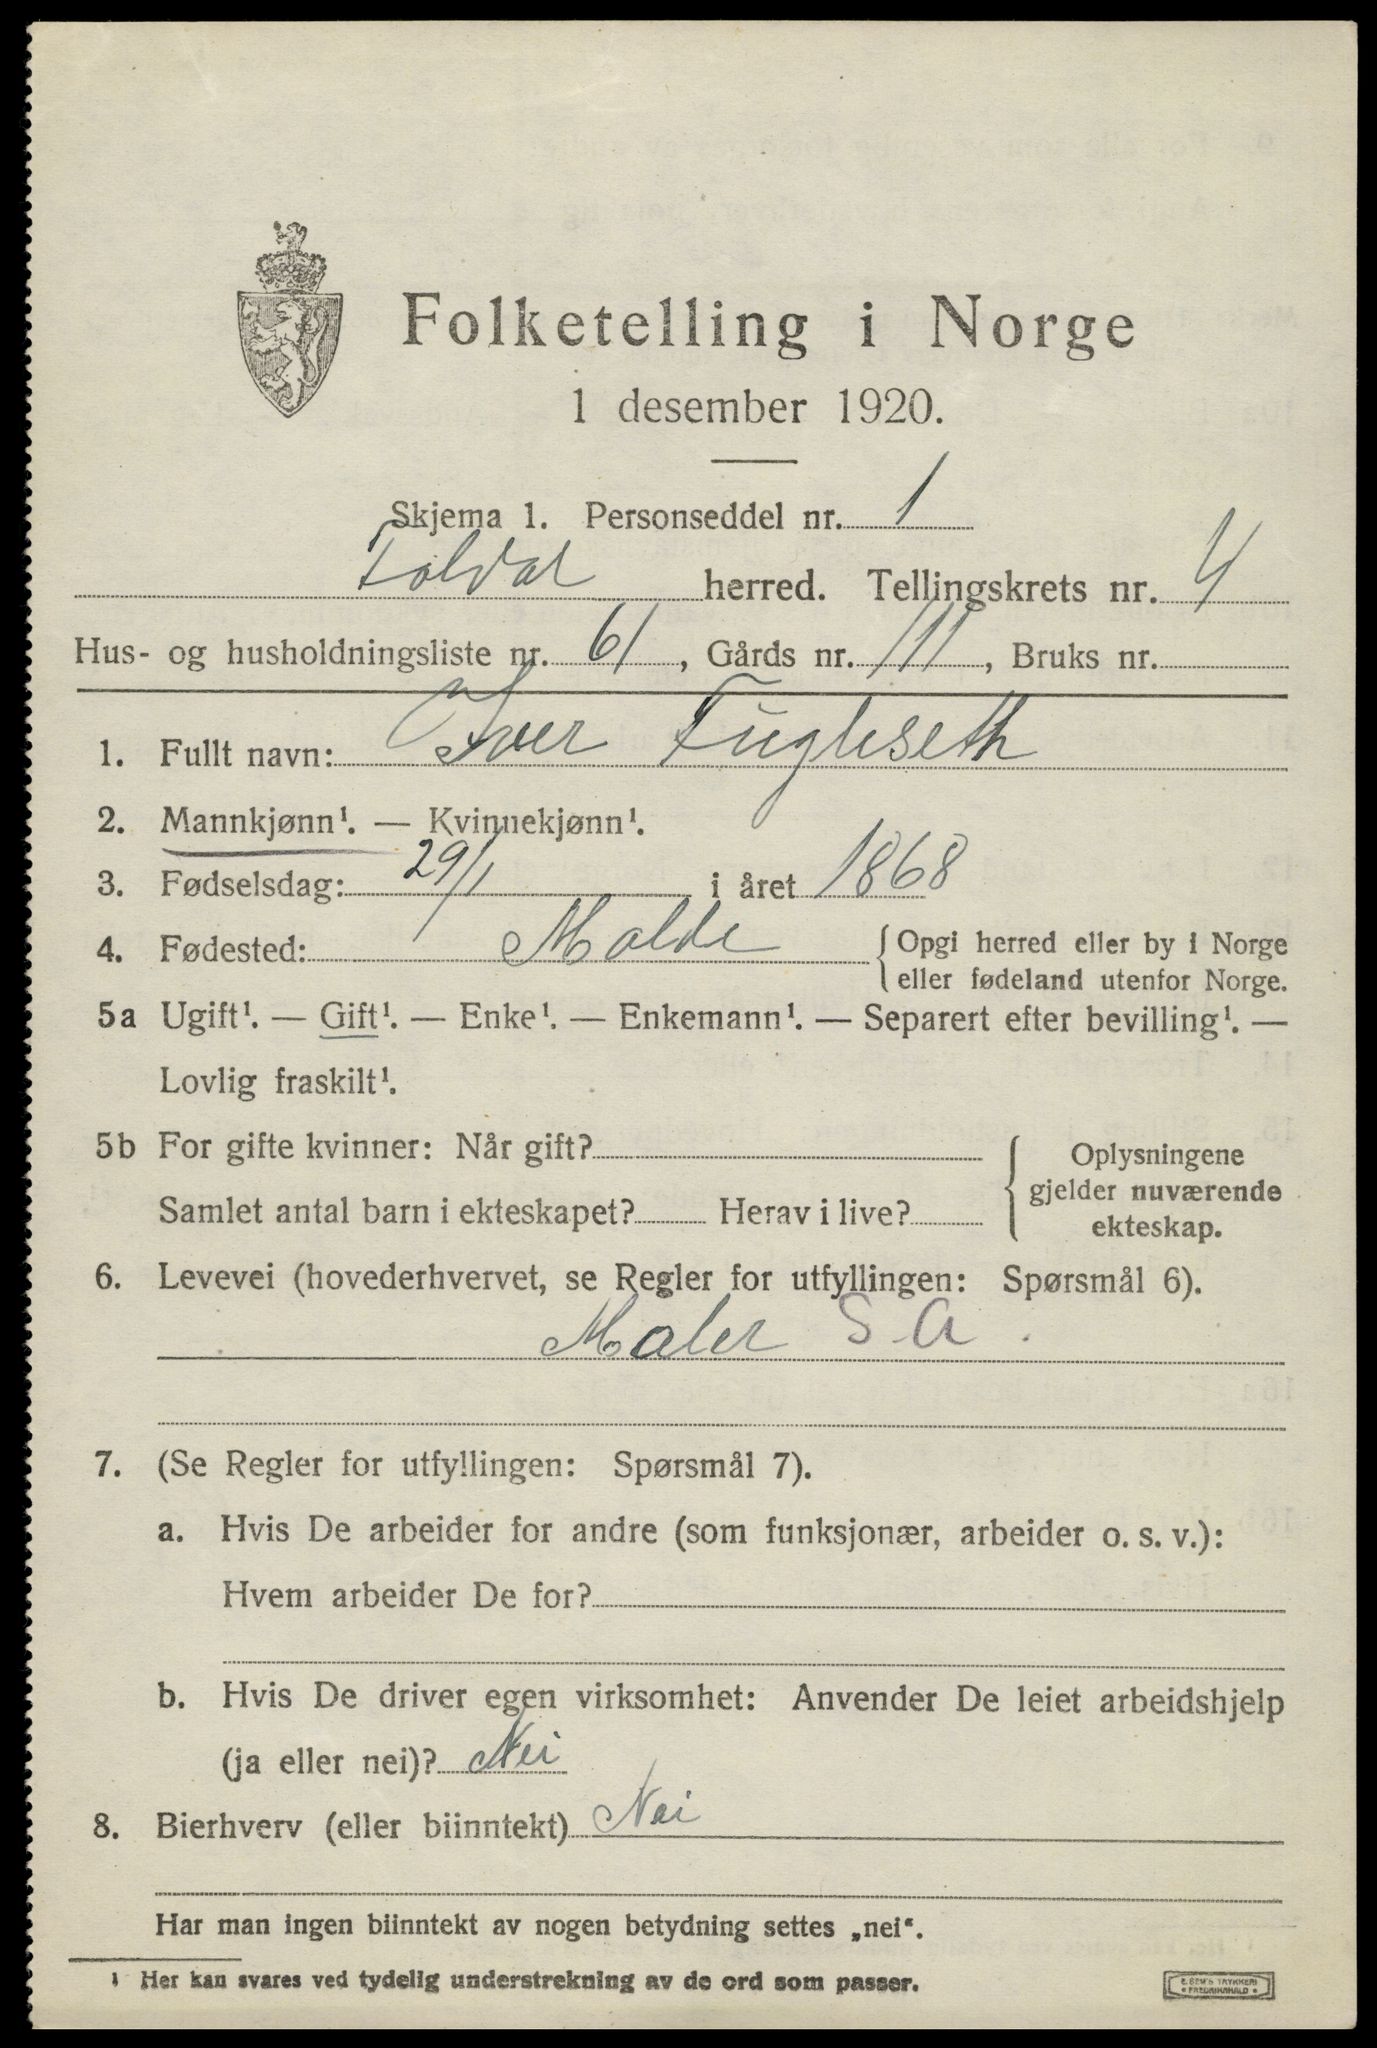 Folketelling i Norge
1 desember 1920.
Skjema 1. Personseddel nr. 1
Foldal herred. Tellingskrets nr. 4
Hus- og husholdningsliste nr. 61, Gårds nr. 111, Bruks nr.
1. Fullt navn: Iver Fugleseth
2. Mannkjønn¹. — Kvinnekjønn¹.
3. Fødselsdag: 29/1 i året 1868
4. Fødested: Molde { Opgi herred eller by i Norge
eller fødeland utenfor Norge.
5a Ugift¹. — Gift¹. — Enke¹. — Enkemann¹. — Separert efter bevilling¹. —
Lovlig fraskilt¹.
5b For gifte kvinner: Når gift?
Samlet antal barn i ekteskapet? Herav i live?
Oplysningene
gjelder nuværende
ekteskap.
6. Levevei (hovederhvervet, se Regler for utfyllingen: Spørsmål 6).
Maler S.A.
7. (Se Regler for utfyllingen: Spørsmål 7).
a. Hvis De arbeider for andre (som funksjonær, arbeider o. s. v.):
Hvem arbeider De for?
b. Hvis De driver egen virksomhet: Anvender De leiet arbeidshjelp
(ja eller nei)? Nei
8. Bierhverv (eller biinntekt) Nei
Har man ingen biinntekt av nogen betydning settes „nei“.
¹ Her kan svares ved tydelig understrekning av de ord som passer.
E. SEM'S TRYKKERI
• FREDRIKSHALD •